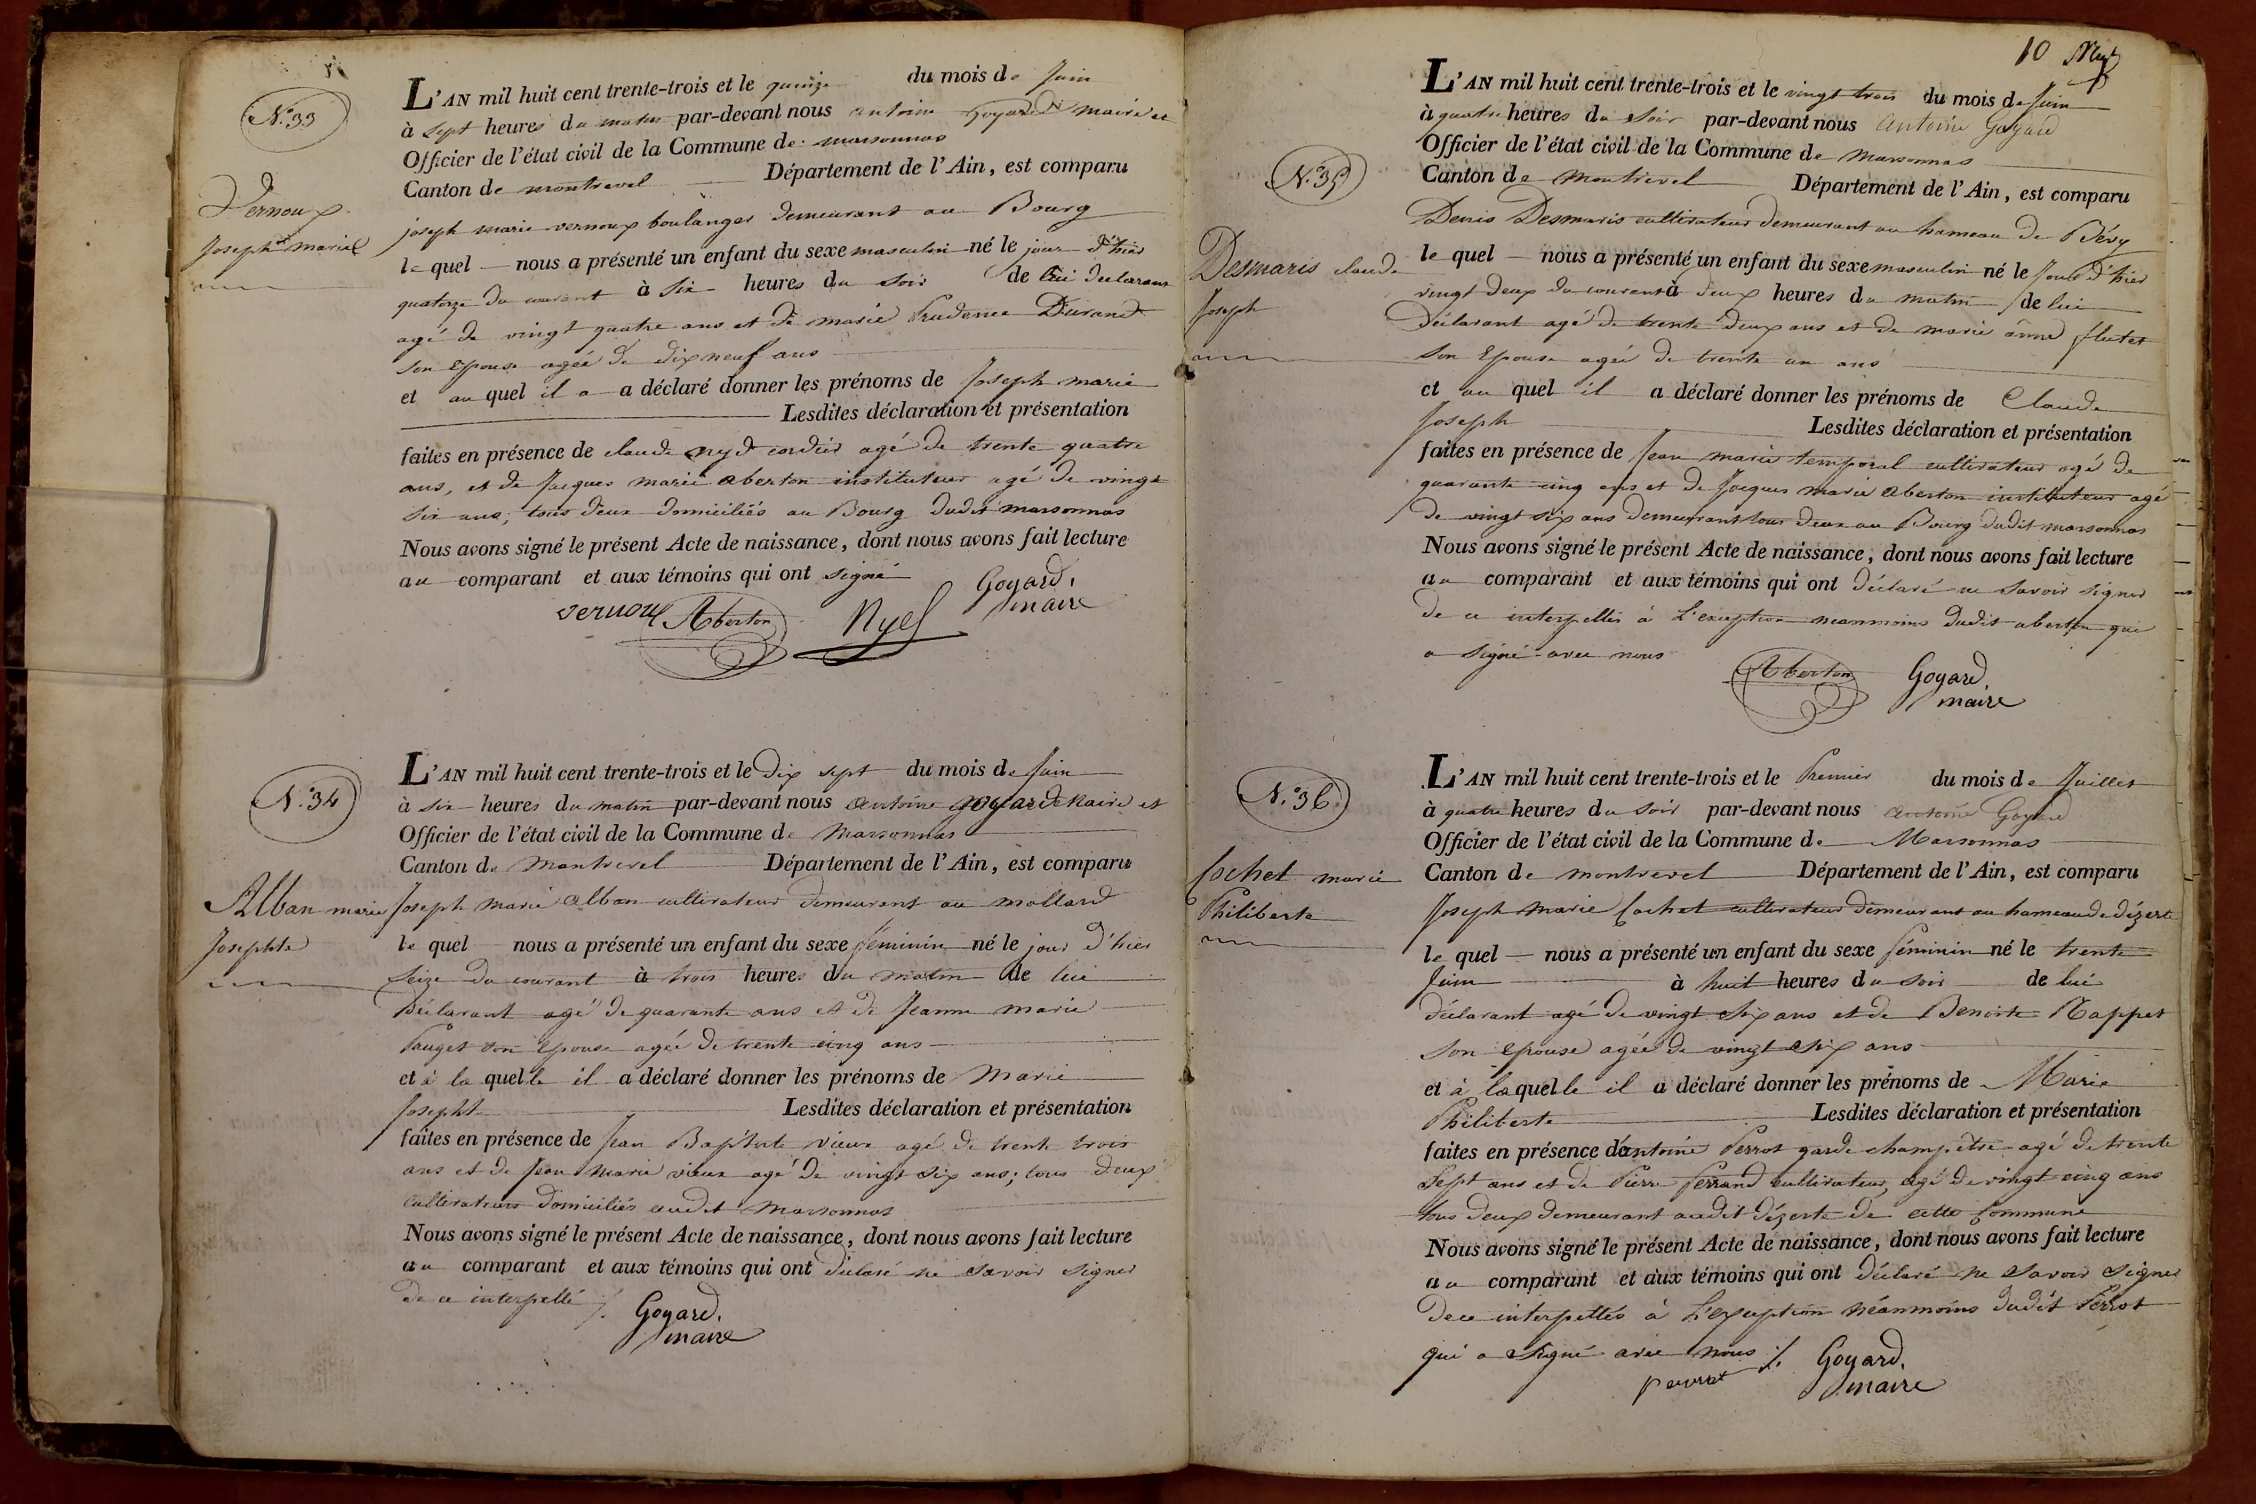 N.° 33
Vernoux
Joseph marie
L'AN mil huit cent trente-trois et le quinze du mois de Juin
à sept heures du matin par-devant nous antoine Goyard maire et
Officier de l'état civil de la Commune de marsonnas
Canton de montrevel Département de l'Ain, est comparu
joseph marie vernoux boulanger demeurant au Bourg
le quel nous a présenté un enfant du sexe masculin né le jour d'hier
quatorze du courant à six heures du soir de lui déclarant
agé de vingt quatre ans et de marie Prudence Durand
son Epouse agée de dix neuf ans
et au quel il a a déclaré donner les prénoms de Joseph marie
Lesdites déclaration et présentation
faites en présence de claude nyd cordier agé de trente quatre
ans, et de Jacques marie aberton instituteur agé de vingt
six ans; tous deux domiciliés au Bourg dudit marsonnas
Nous avons signé le présent Acte de naissance, dont nous avons fait lecture
au comparant et aux témoins qui ont signé
vernoux Aberton Nyd Goyard, maire
N.° 34
Alban marie
Josephte
L'AN mil huit cent trente-trois et le Dix sept du mois de Juin
à six heures du matin par-devant nous antoine Goyard Maire et
Officier de l'état civil de la Commune de Marsonnas
Canton de Montrevel Département de l'Ain, est comparu
Joseph Marie alban cultivateur demeurant au mollard
le quel nous a présenté un enfant du sexe féminin né le jour d'hier
seize du courant à trois heures du matin de lui
Déclarant agé de quarante ans et de Jeanne marie
Pauget son Epouse agée de trente cinq ans
et à la quelle il a déclaré donner les prénoms de Marie
Josephte Lesdites déclaration et présentation
faites en présence de Jean Baptiste vieux agé de trente trois
ans et de Jean Marie vieux agé de vingt six ans; tous deux
cultivateurs domiciliés audit Marsonnas
Nous avons signé le présent Acte de naissance, dont nous avons fait lecture
au comparant et aux témoins qui ont déclaré ne savoir signer
de ce interpellé ./. Goyard,
maire
10
N.° 35
Desmaris claude
Joseph
L'AN mil huit cent trente-trois et le vingt trois du mois de Juin
à quatre heures du soir par-devant nous Antoine Goyard
Officier de l'état civil de la Commune de Marsonnas
Canton de Montrevel Département de l'Ain, est comparu
Denis Desmaris cultivateur demeurant au hameau de Bévy
le quel nous a présenté un enfant du sexe masculin né le Jour d'hier
vingt deux du courant à deux heures du matin de lui
Déclarant agé de trente deux ans et de marie anne flutet
son Epouse agée de trente un ans
et au quel il a déclaré donner les prénoms de Claude
Joseph Lesdites déclaration et présentation
faites en présence de Jean marie temporal cultivateur agé de
quarante cinq ans et de Jacques marie Aberton instituteur agé
de vingt six ans demeurant tous deux au Bourg dudit marsonnas
Nous avons signé le présent Acte de naissance, dont nous avons fait lecture
au comparant et aux témoins qui ont déclaré ne savoir signer
de ce interpellés à L'exception neanmoins dudit aberton qui
a signé avec nous
Aberton Goyard
maire
N.° 36
Cochet marie
Philiberte
L'AN mil huit cent trente-trois et le Premier du mois de Juillet
à quatre heures du soir par-devant nous antoine Goyard
Officier de l'état civil de la Commune de Marsonnas
Canton de montrevel Département de l'Ain, est comparu
Joseph Marie Cochet cultivateur demeurant au hameau de dézerte
le quel nous a présenté un enfant du sexe féminin né le trente
Juin à huit heures du soir de lui
déclarant agé de vingt six ans et de Benoite Rappet
son epouse agée de vingt six ans
et à laquelle il a déclaré donner les prénoms de Marie
Philiberte Lesdites déclaration et présentation
faites en présence d'antoine Perrot garde champêtre agé de trente
sept ans et de Pierre ferrand cultivateur, agé de vingt cinq ans
tous deux demeurant audit dézerte de cette Commune
Nous avons signé le présent Acte de naissance, dont nous avons fait lecture
au comparant et aux témoins qui ont déclaré ne savoir signer
de ce interpellés à L'exception néanmoins dudit Perrot
qui a signé avec nous ./. Goyard,
maire